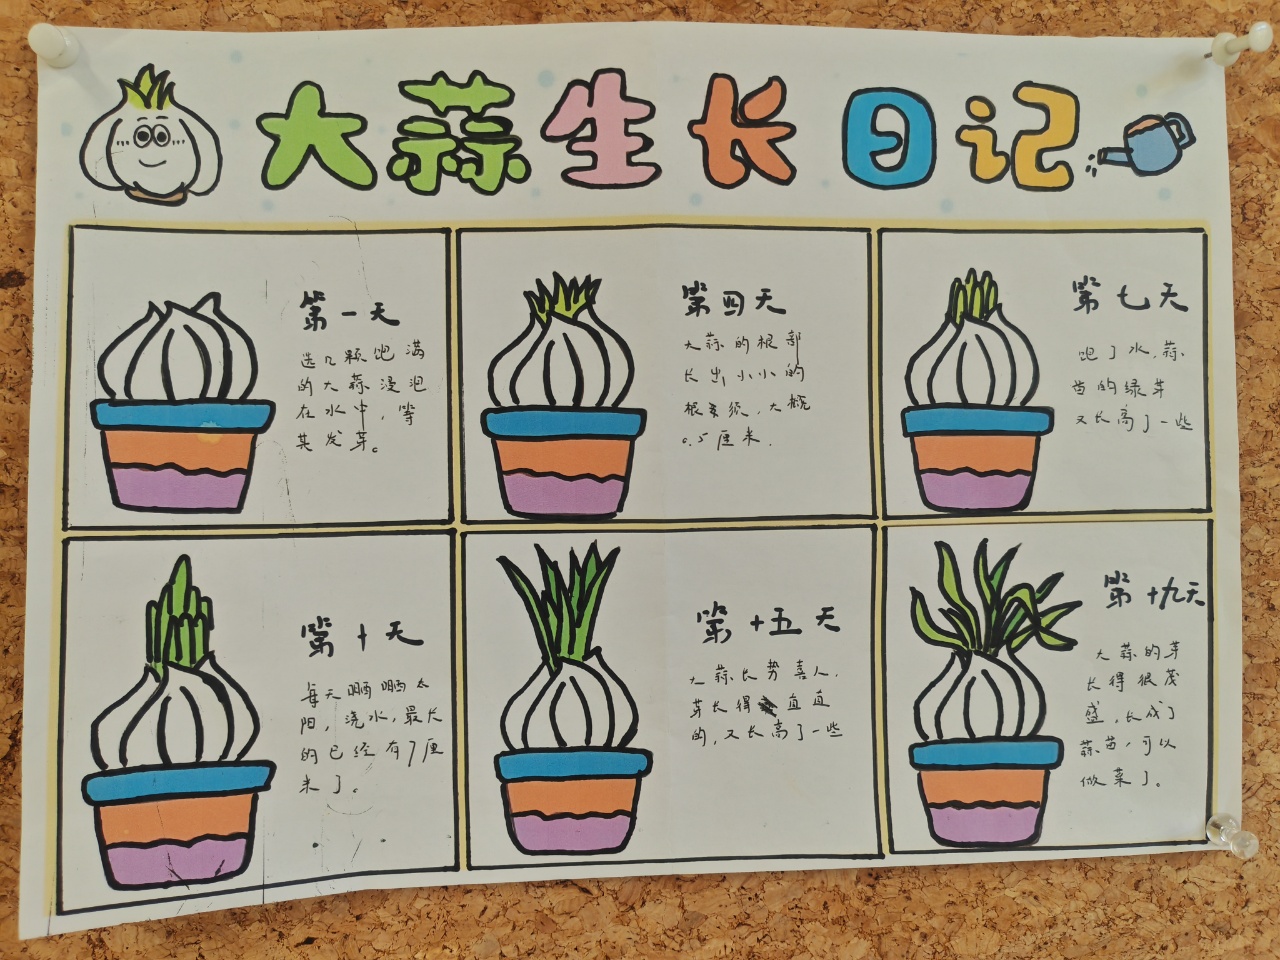 大蒜生长日记
第一天
选几颗饱满
的大蒜浸泡
在水中，等
其发芽。
第四天
大蒜的根部
长出小小的
根须，大概
0.5厘米.
第七天
饱了水，蒜
苗的绿芽
又长高了一些
第十天
每天晒晒太
阳，浇水，最长
的已经有7厘
米了。
第十五天
大蒜长势喜人，
芽长得直直
的，又长高了一些
第十九天
大蒜的芽
长得很茂
盛，长成了
蒜苗，可以
做菜了。